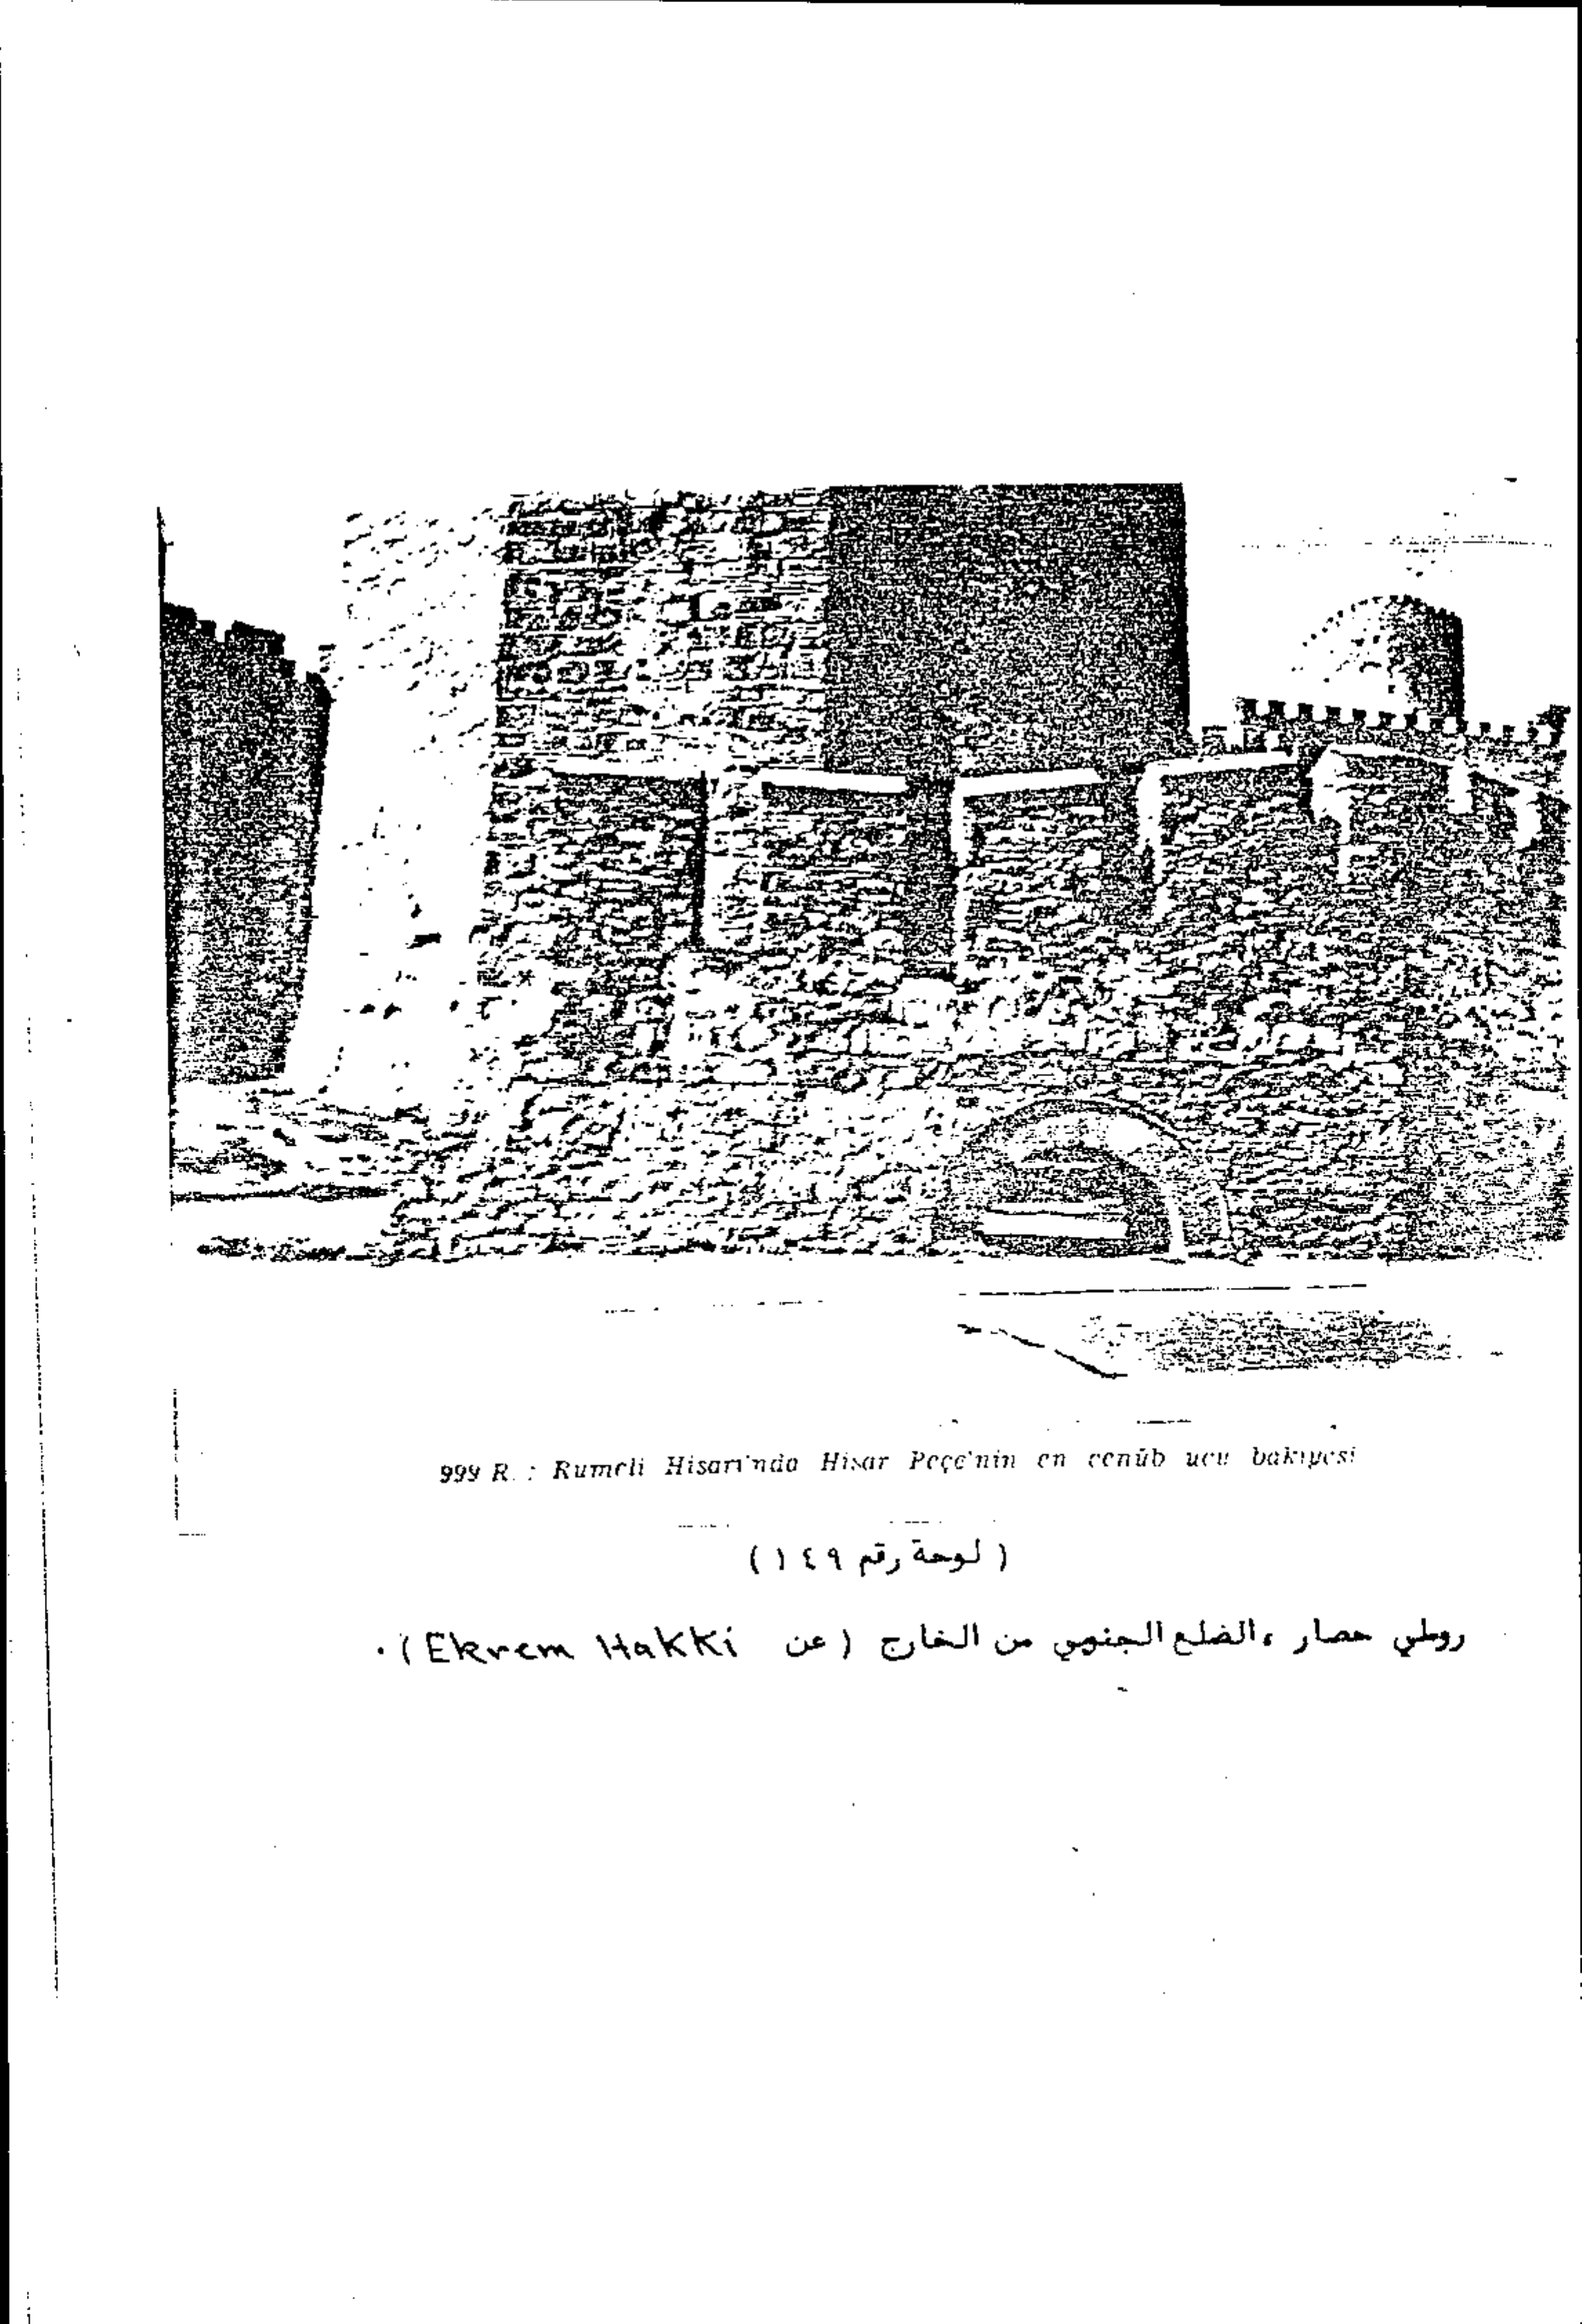 999 R. : Rumeli Hisarı'nda Hisar Peçe'nin en cenûb ucu bakıyesi
( لوحة رقم ١٤٩ )
روملي حصار ، الضلع الجنوبي من الخارج ( عن Ekrem Hakki ) .